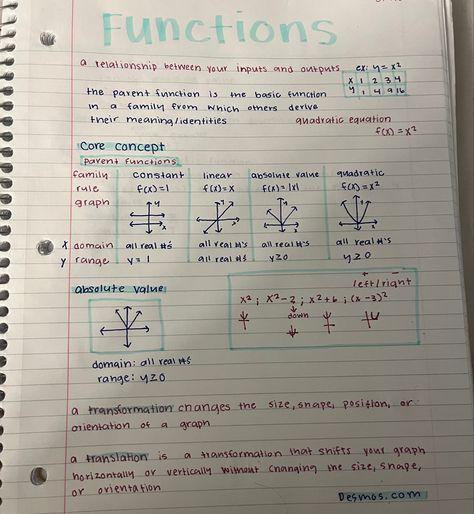 Functions
a relationship between your inputs and outputs
ex: y = x²
x 1 2 3 4
y 1 4 9 16
the parent function is the basic function
in a family from which others derive
their meaning/identities
quadratic equation
f(x) = x²
core concept
parent functions
family constant linear absolute value quadratic
rule f(x)=1 f(x)=x f(x)=|x| f(x)=x²
graph
x domain all real #'s all real #'s all real #'s all real #'s
y range y=1 all real #'s y≥0 y≥0
absolute value
+ -
left/right
x² ; x²-2 ; x²+6 ; (x-3)²
down
domain: all real #s
range: y≥0
a transformation changes the size, shape, position, or
orientation of a graph
a translation is a transformation that shifts your graph
horizontally or vertically without changing the size, shape,
or orientation
Desmos.com